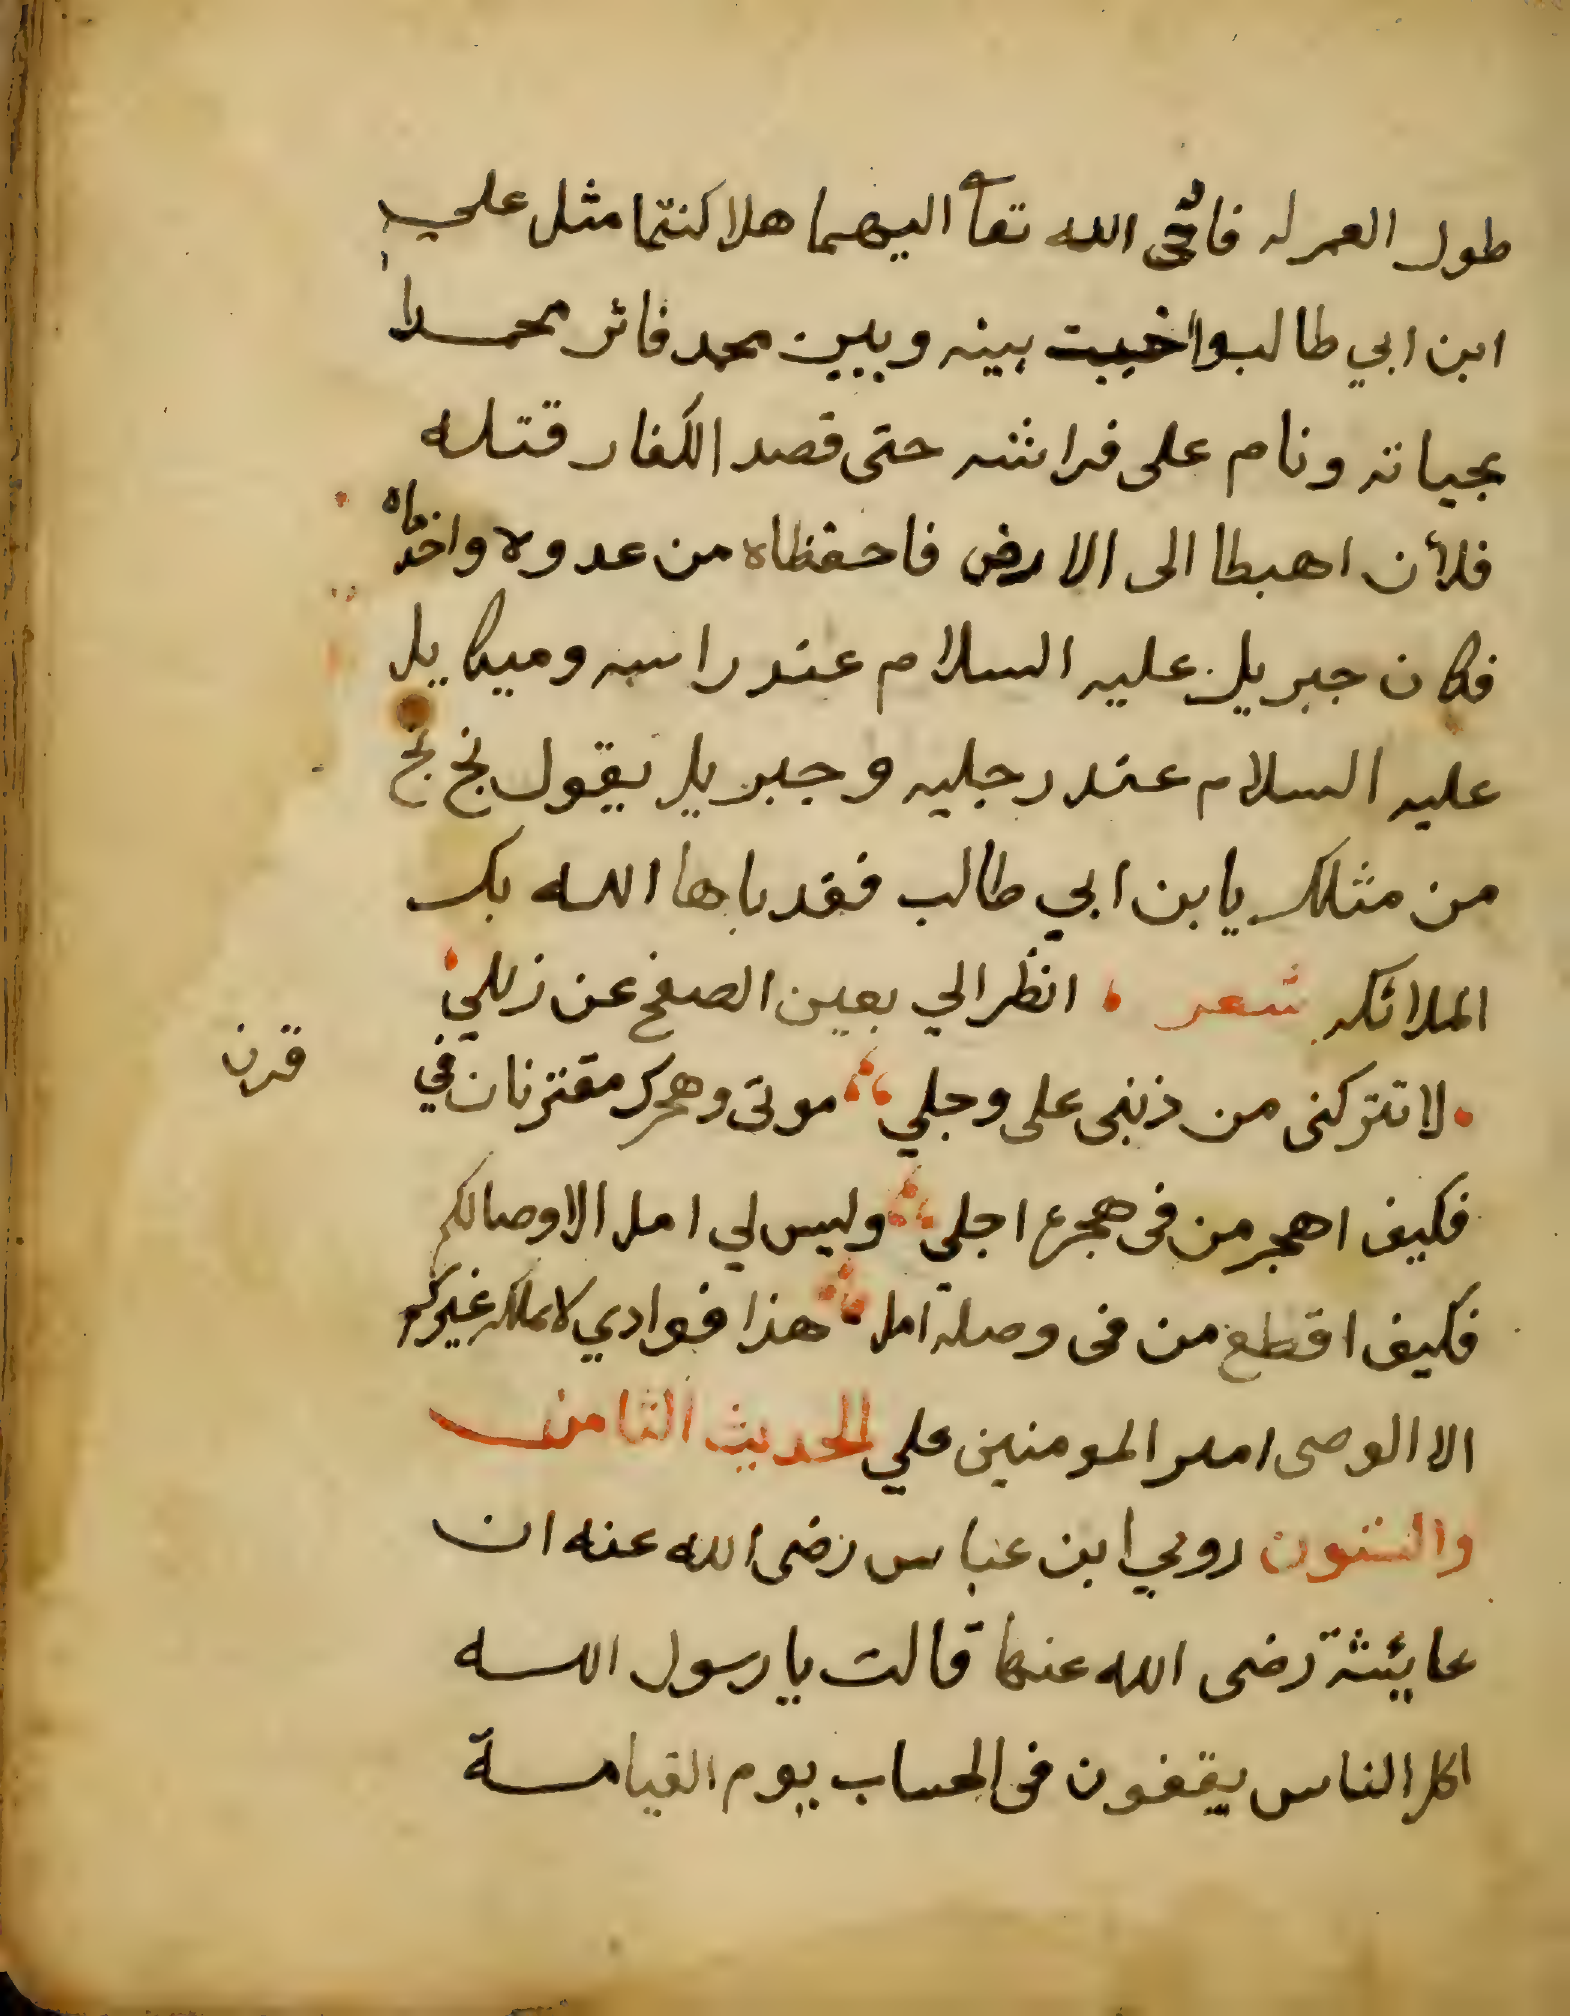 طول العمر له فاوحى الله تعا اليهما هلا كنتما مثل علي
ابن ابي طالب واخيت بينه وبين محمد فاثر محمدا
بحياته ونام على فراشه حتى قصد الكفار قتله
فلأن اهبطا الى الارض فاحفظاه من عدوه واخدماه
فكان جبريل عليه السلام عند راسه وميكاييل
عليه السلام عند رجليه وجبريل يقول بخ بخ
من مثلك يابن ابي طالب فقد باها الله بك
الملائكه شعر انظر الي بعين الصفح عن زللي
لا تتركني من ذنبى على وجلي موتى وهجرك مقترنان في
قرن
فكيف اهجر من فى هجره اجلي وليس لي امل الا وصالكم
فكيف اقطع من فى وصله امل هذا فوادي لا يملكه غيركم
الا الوصى امير المومنين علي الحديث الثامن
والستون روي ابن عباس رضى الله عنه ان
عايئشة رضى الله عنها قالت يا رسول الله
اكل الناس يقفون فى الحساب يوم القيامة